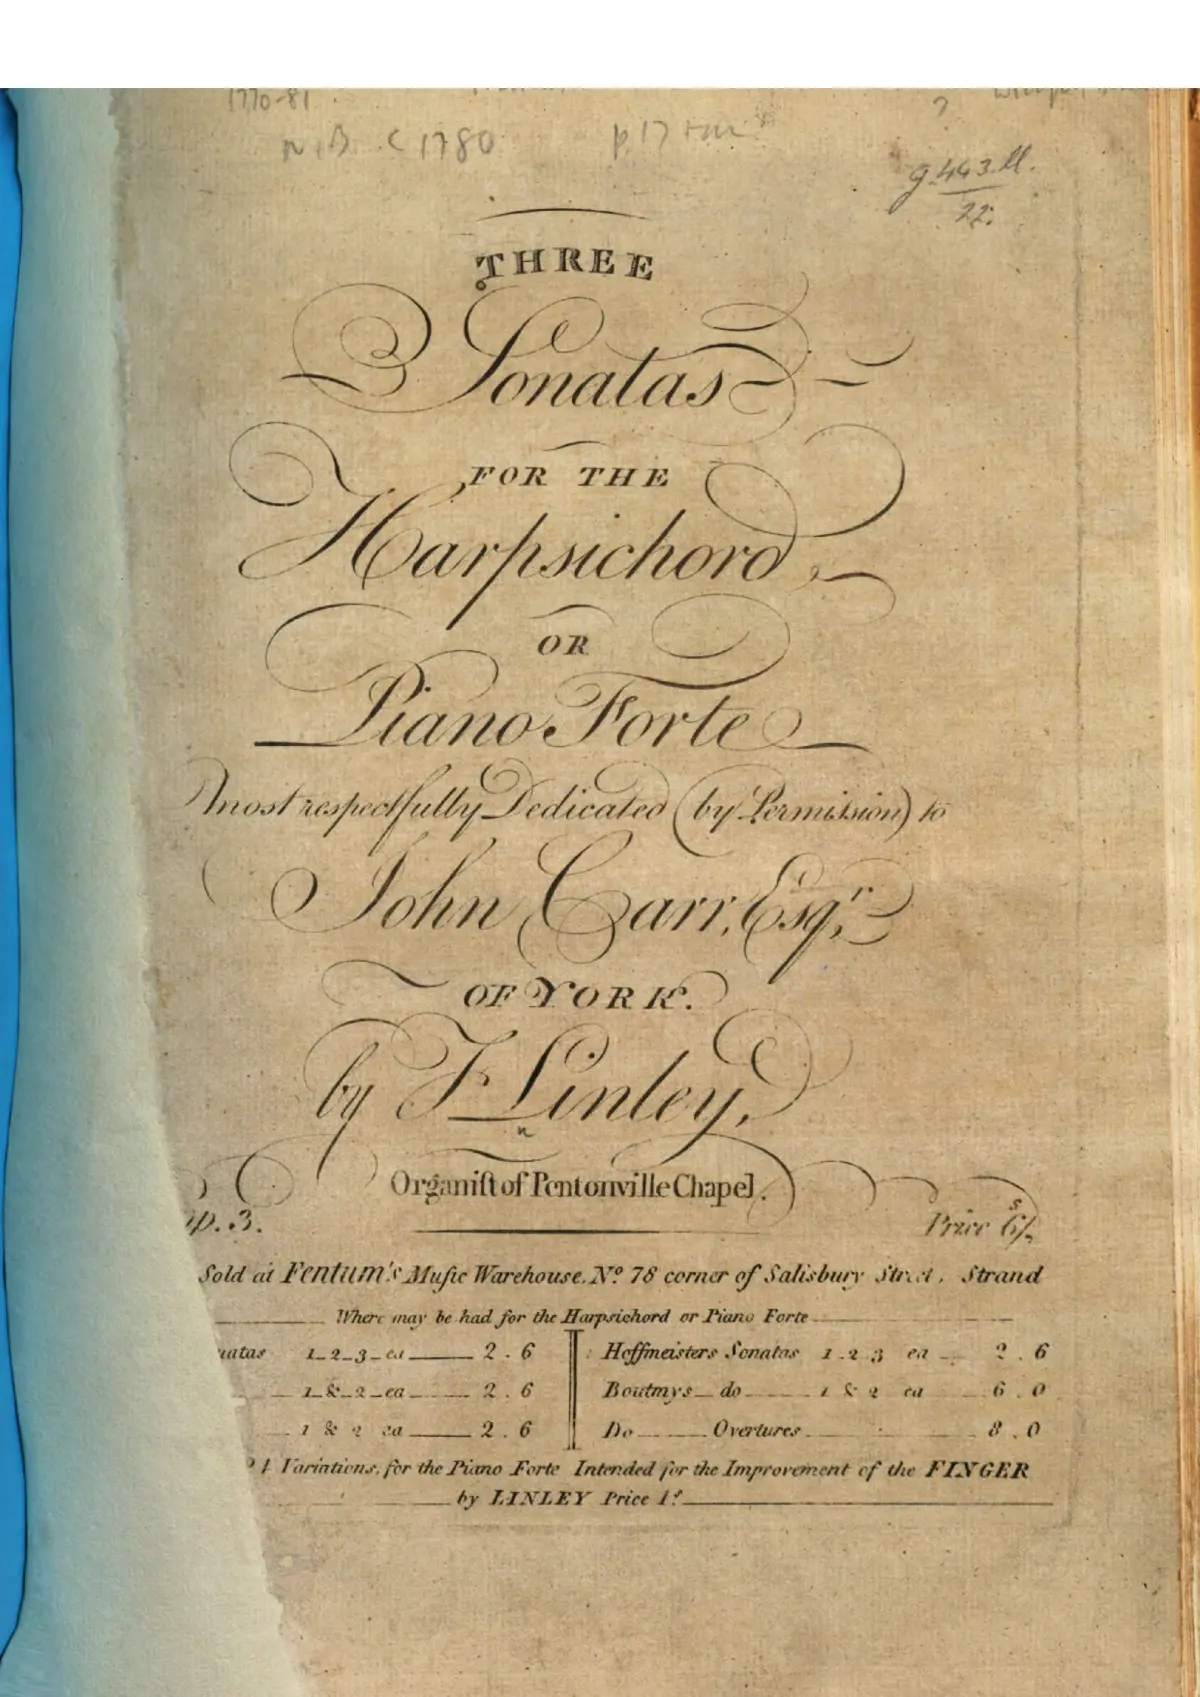 1770-81
N.B. c 1780
g.443.ll.
22.
THREE
Sonatas
FOR THE
Harpsichord
OR
Piano Forte
most respectfully Dedicated (by Permission) to
John Carr, Esqr,
OF YORK.
by F Linley,
Organiſt of Pentonville Chapel.
p. 3. Price 6/
s
Sold at Fentum's Muſic Warehouse. No 78 corner of Salisbury Street, Strand
Where may be had for the Harpsichord or Piano Forte
natas 1_2_3_ea 2.6 Hoffmeisters Sonatas 1.2.3 ea 2.6
1_&_2_ea 2.6 Boutmys do 1 & 2 ea 6.0
1 & 2 ea 2.6 Do Overtures 8.0
Variations, for the Piano Forte Intended for the Improvement of the FINGER
by LINLEY Price 1s